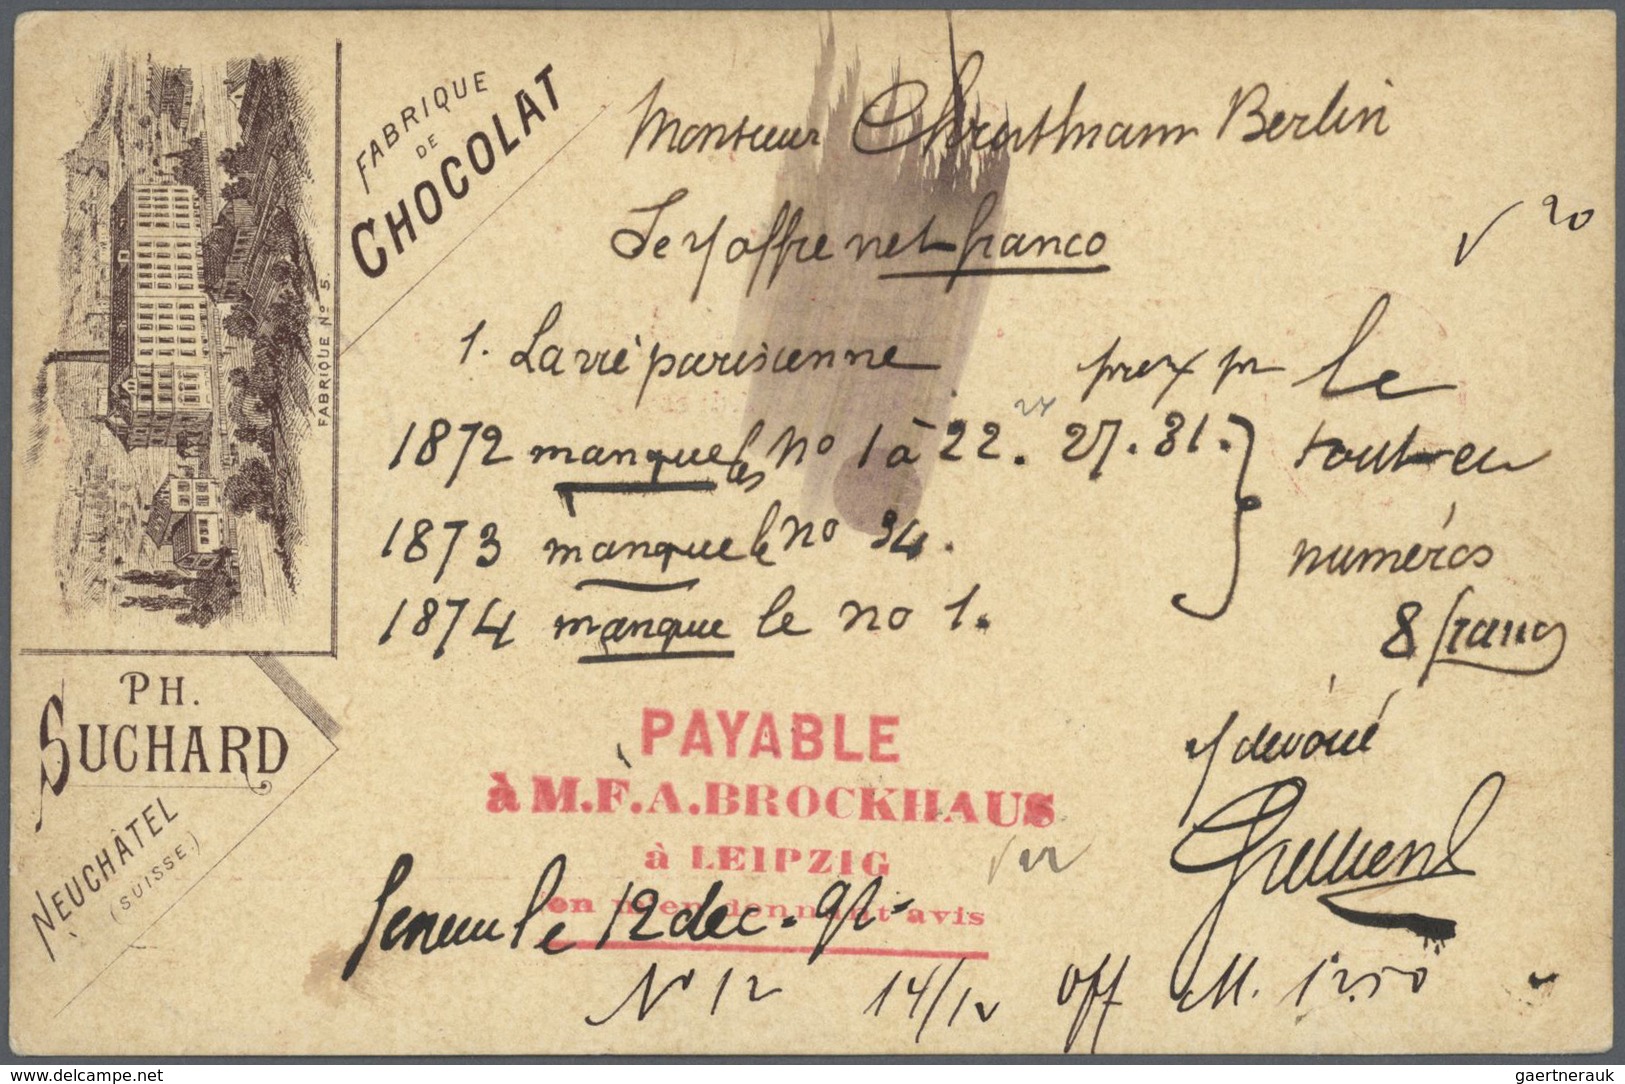 FABRIQUE
DE
CHOCOLAT
FABRIQUE Nº 5.
PH.
SUCHARD
NEUCHÂTEL
(SUISSE.)
Monsieur Berlin
Je v offre net franco
√ 20
1. La vie parisienne prix pr le
1872 manque les no 1 à 22. 27. 31. tout en
1873 manque le no 34. numéros
1874 manque le no 1. 8 francs
PAYABLE
à M.F.A. BROCKHAUS
à LEIPZIG
en m'en donnant avis
v dévoué
le 12 dec. 92
No 12 14/12 Off M. 12.50
delcampe.net
gaertnerauk